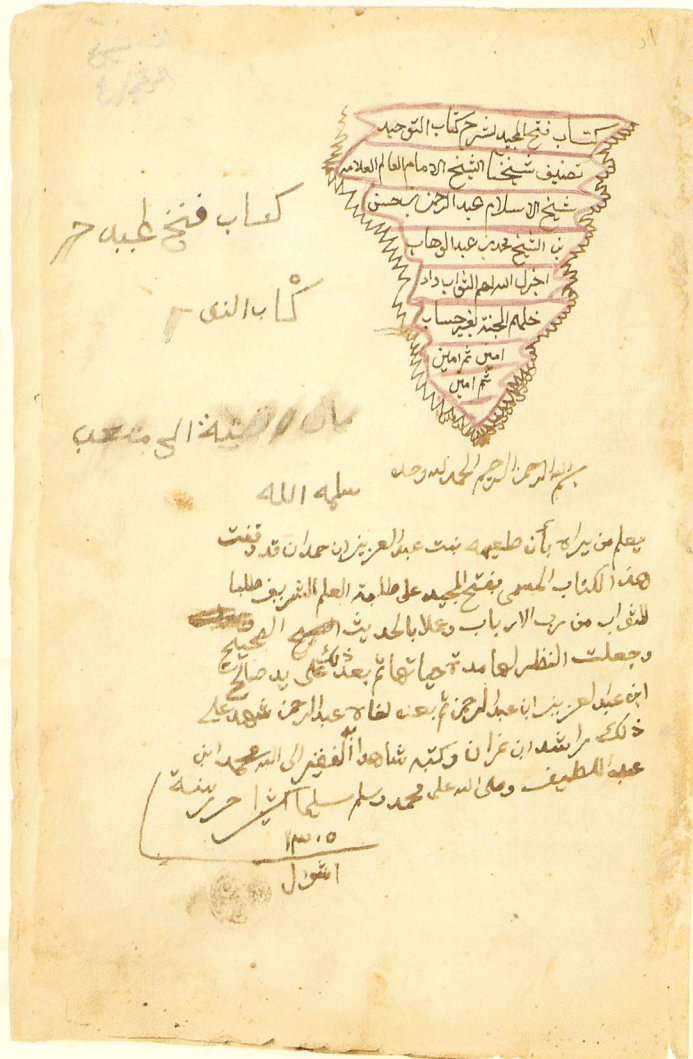 كتاب فتح المجيد لشرح كتاب التوحيد
تصنيف شيخنا الشيخ الامام العالم العلامه
شيخ الاسلام عبد الرحمن بن حسن
بن الشيخ محمد بن عبد الوهاب
اجزل الله لهم الثواب واد
خلهم الجنة بغير حساب
امين ثم امين
ثم امين
كتاب فتح
كتاب
الى
سلمه الله
بسم الله الرحمن الرحيم الحمد لله وحده
يعلم من يراه بأن طعيمه بنت عبد العزيز ابن حمدان قد وقفت
هذا الكتاب المسمى بفتح المجيد على طلبة العلم الشريف طلبا
للثواب من رب الارباب وعملا بالحديث الصحيح
وجعلت النظر لها مدة حياتها ثم بعد ذلك على يد صالح
ابن عبد العزيز ابن عبد الرحمن ثم بعده لخاه عبد الرحمن شهد على
ذلك راشد ابن غزان وكتبه شاهدا به الفقير الى الله محمد ابن
عبد اللطيف وصلى الله على محمد وسلم تسليما كثيرا حرر سنة
١٣٠٥
شوال